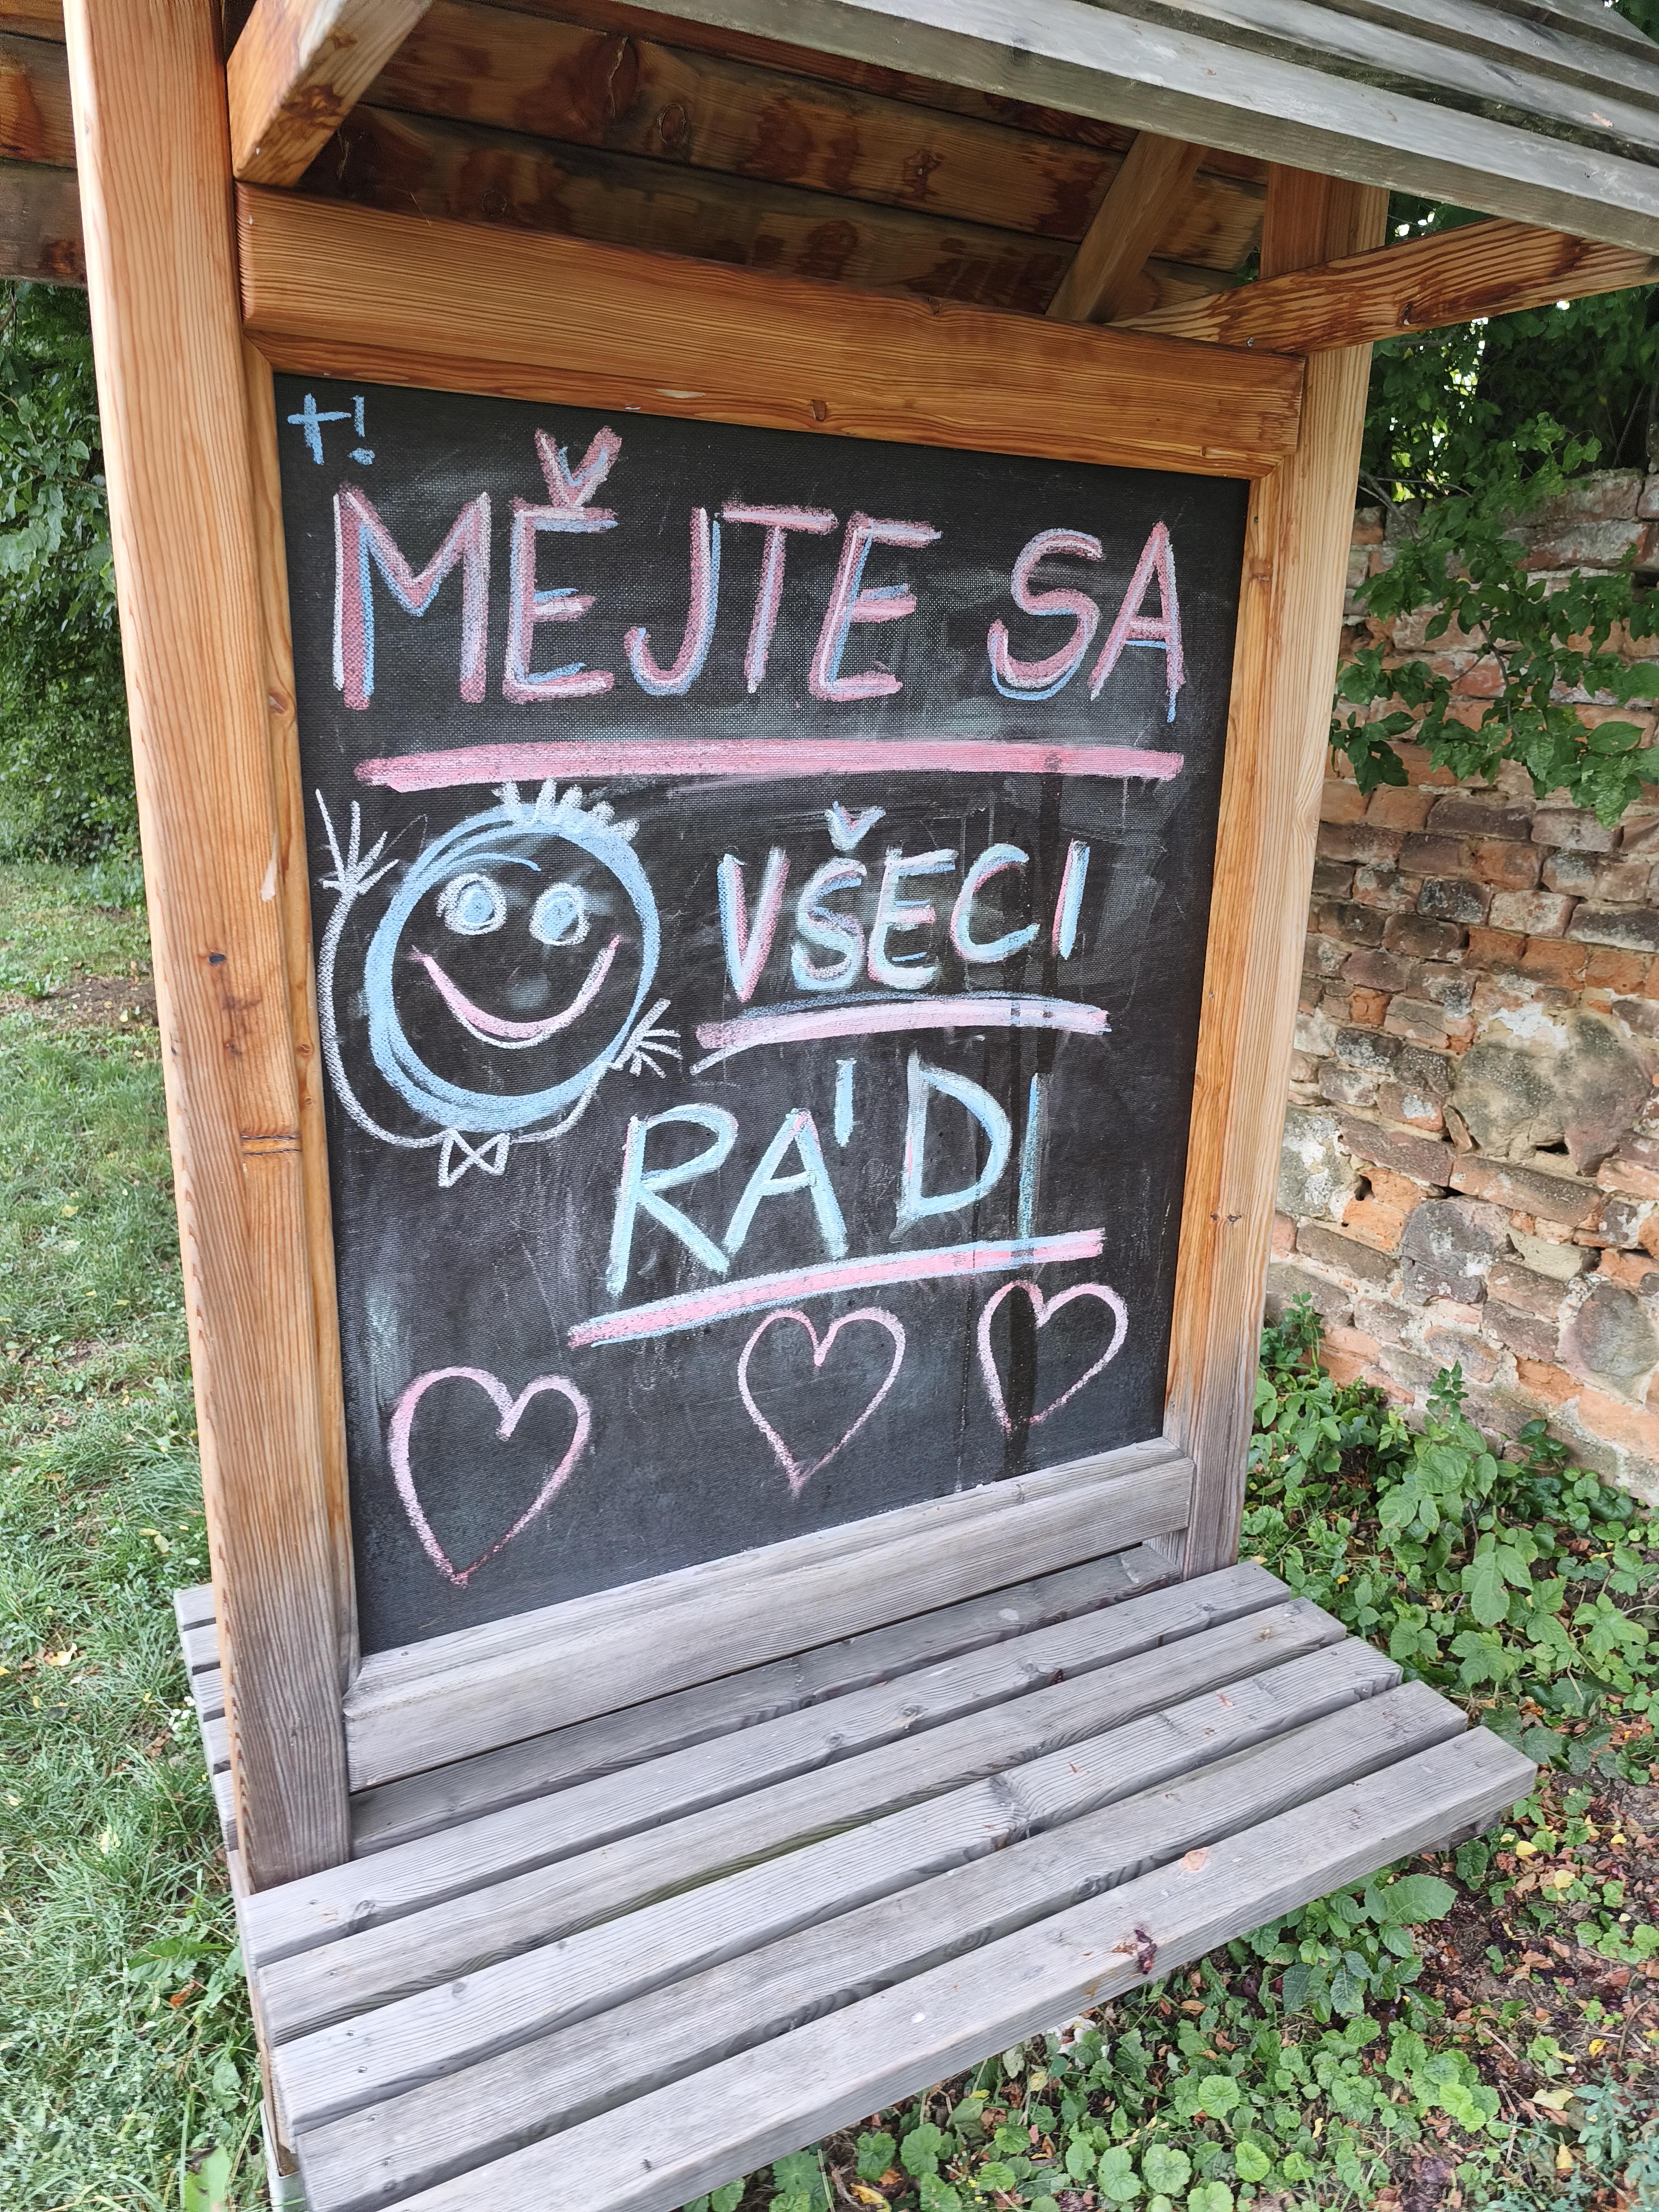 +!
MĚJTE SA
VŠECI
RÁDI